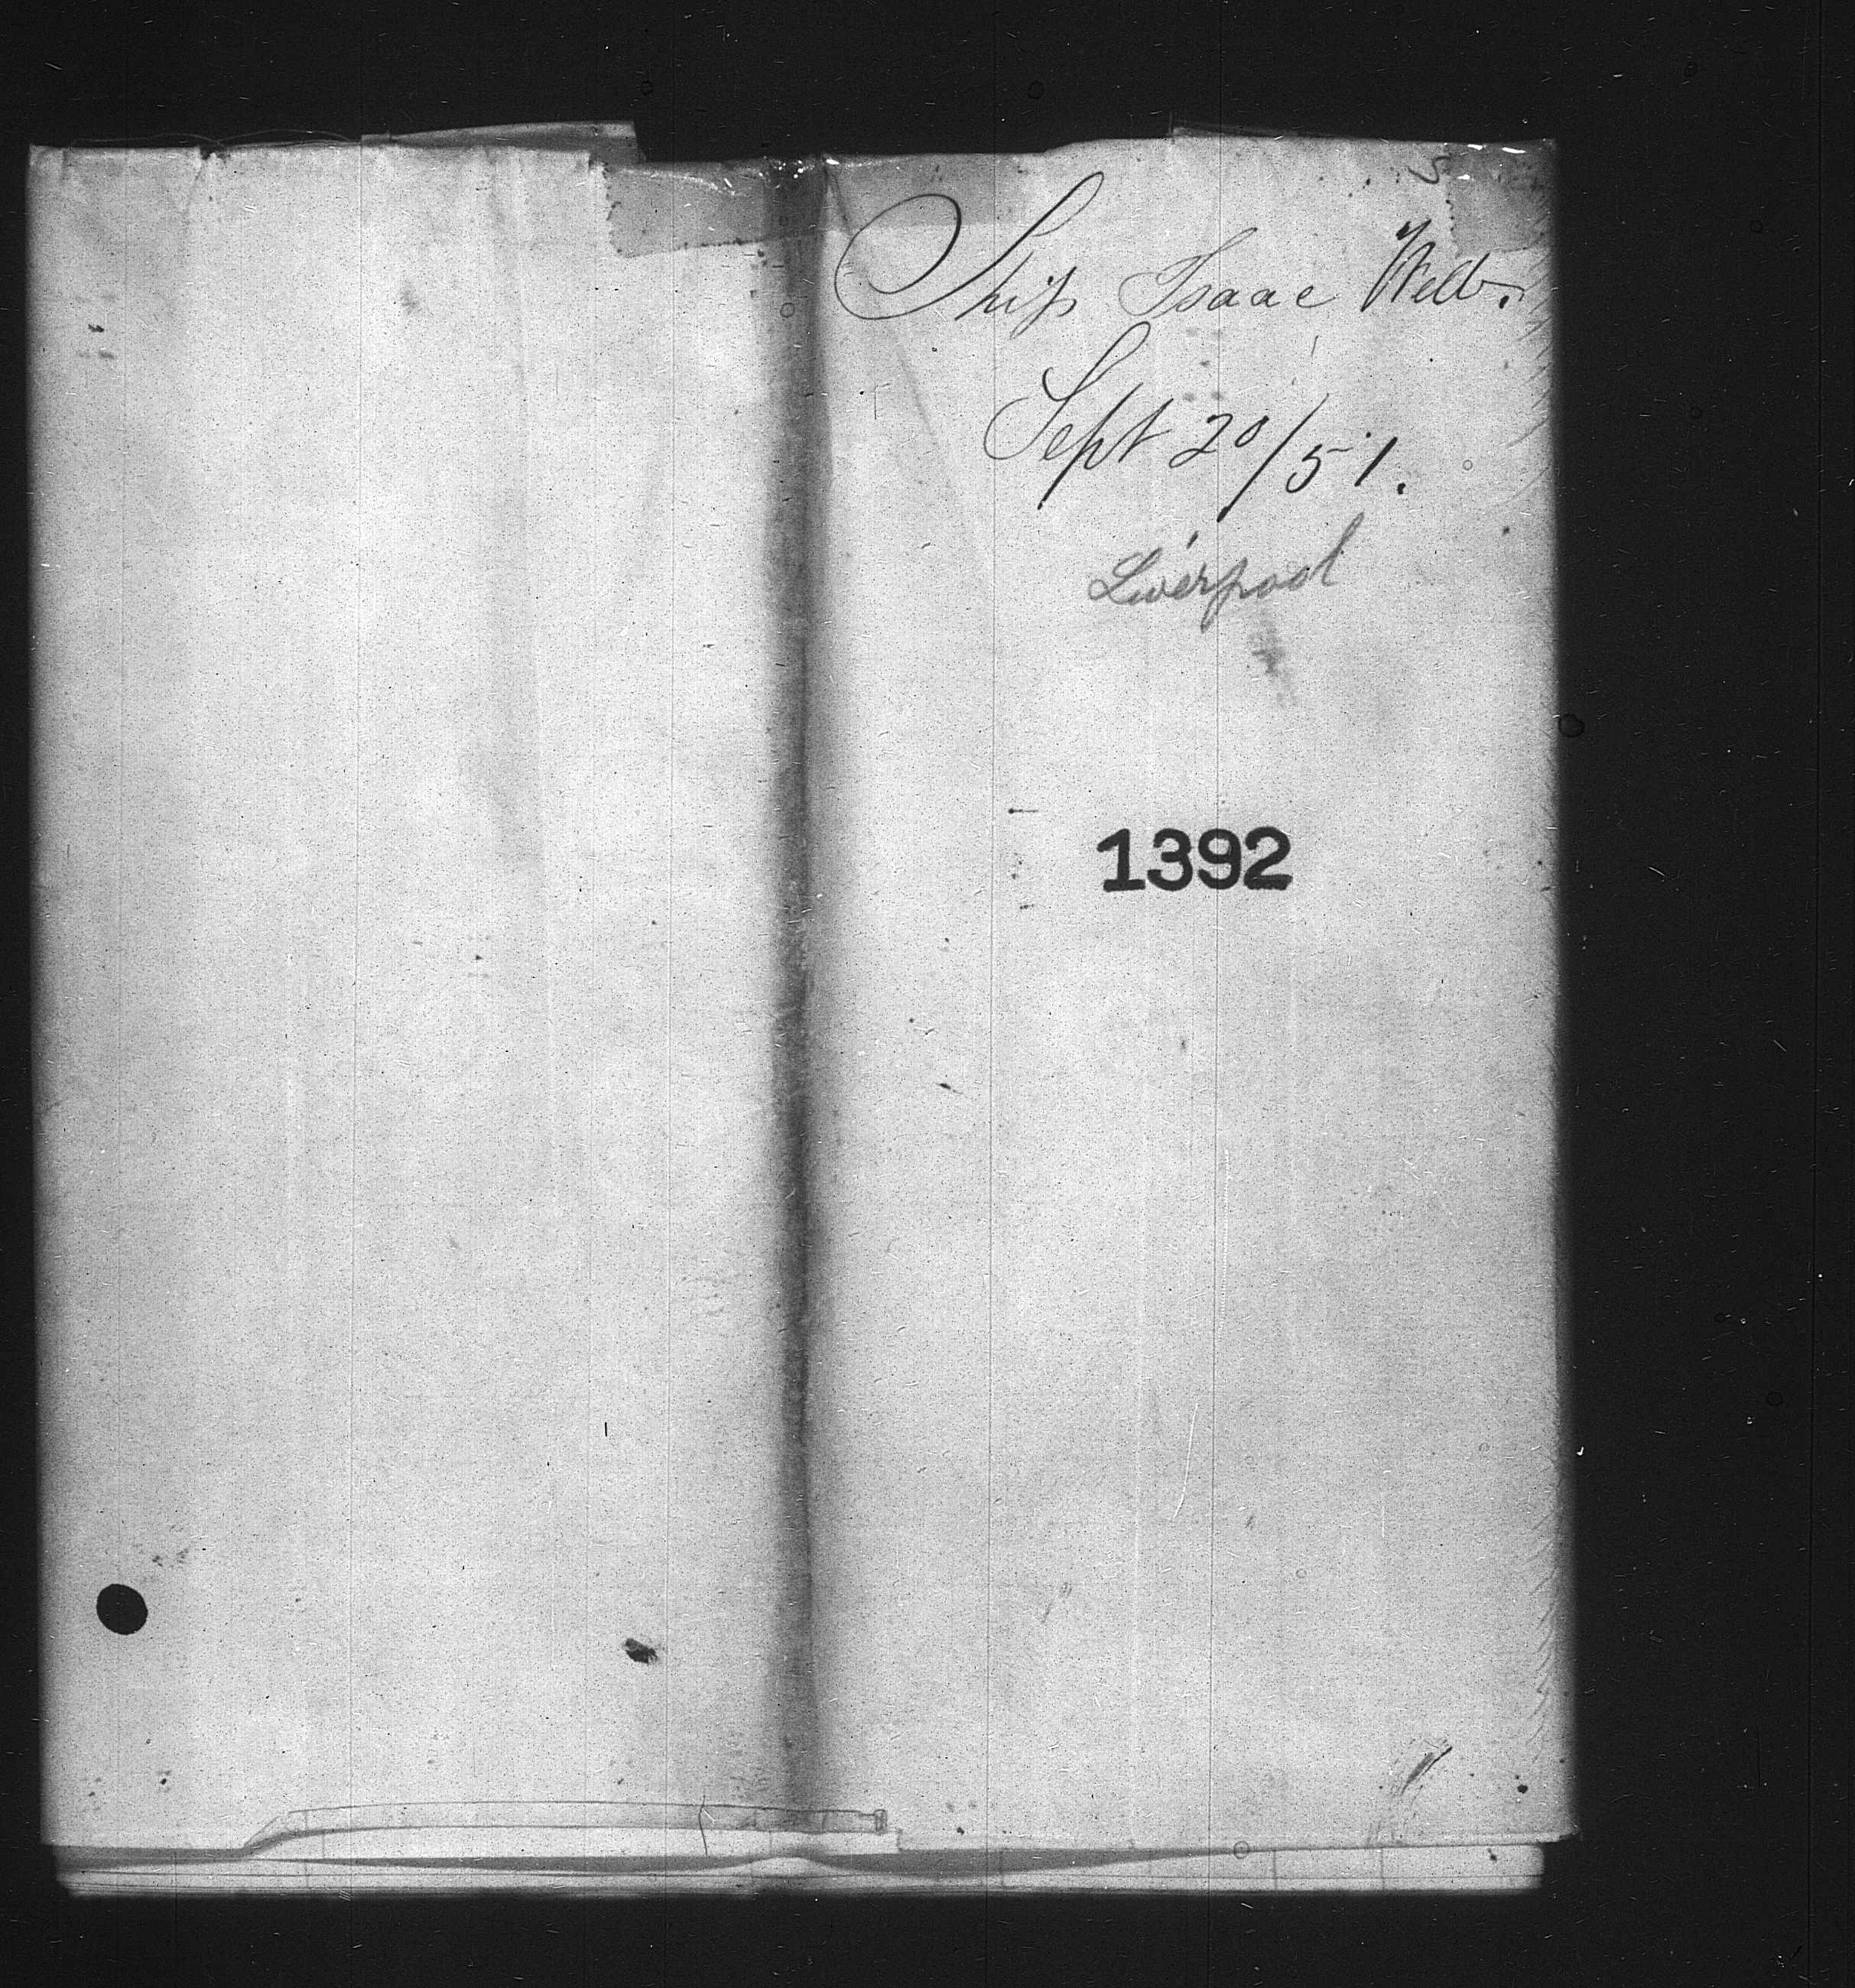 Ship Isaac Webb.
Sept 20/51.
Liverpool
1392